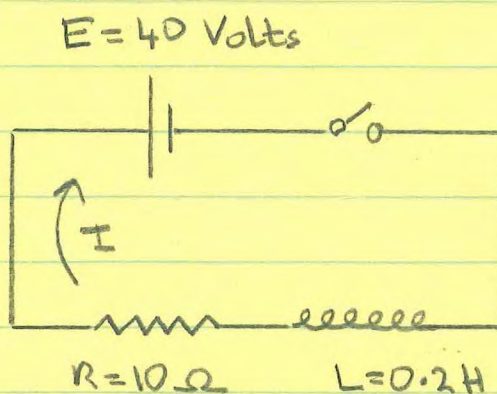 E = 40 Volts
I
R = 10 Ω L = 0.2 H